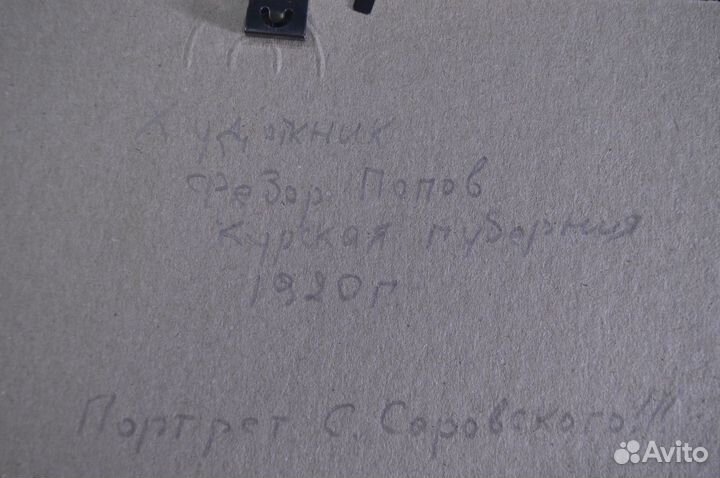 Художник
Федор Попов
Курская губерния
1920 г.
Портрет С. Саровского!!!
Avito